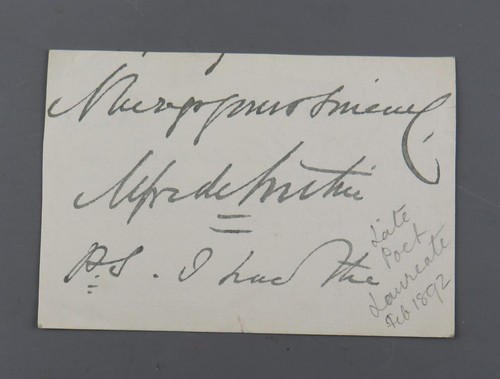 Always yours sincerely
Alfred Austin
P.S. I had the
Late
Poet
Laureate
Feb 1892